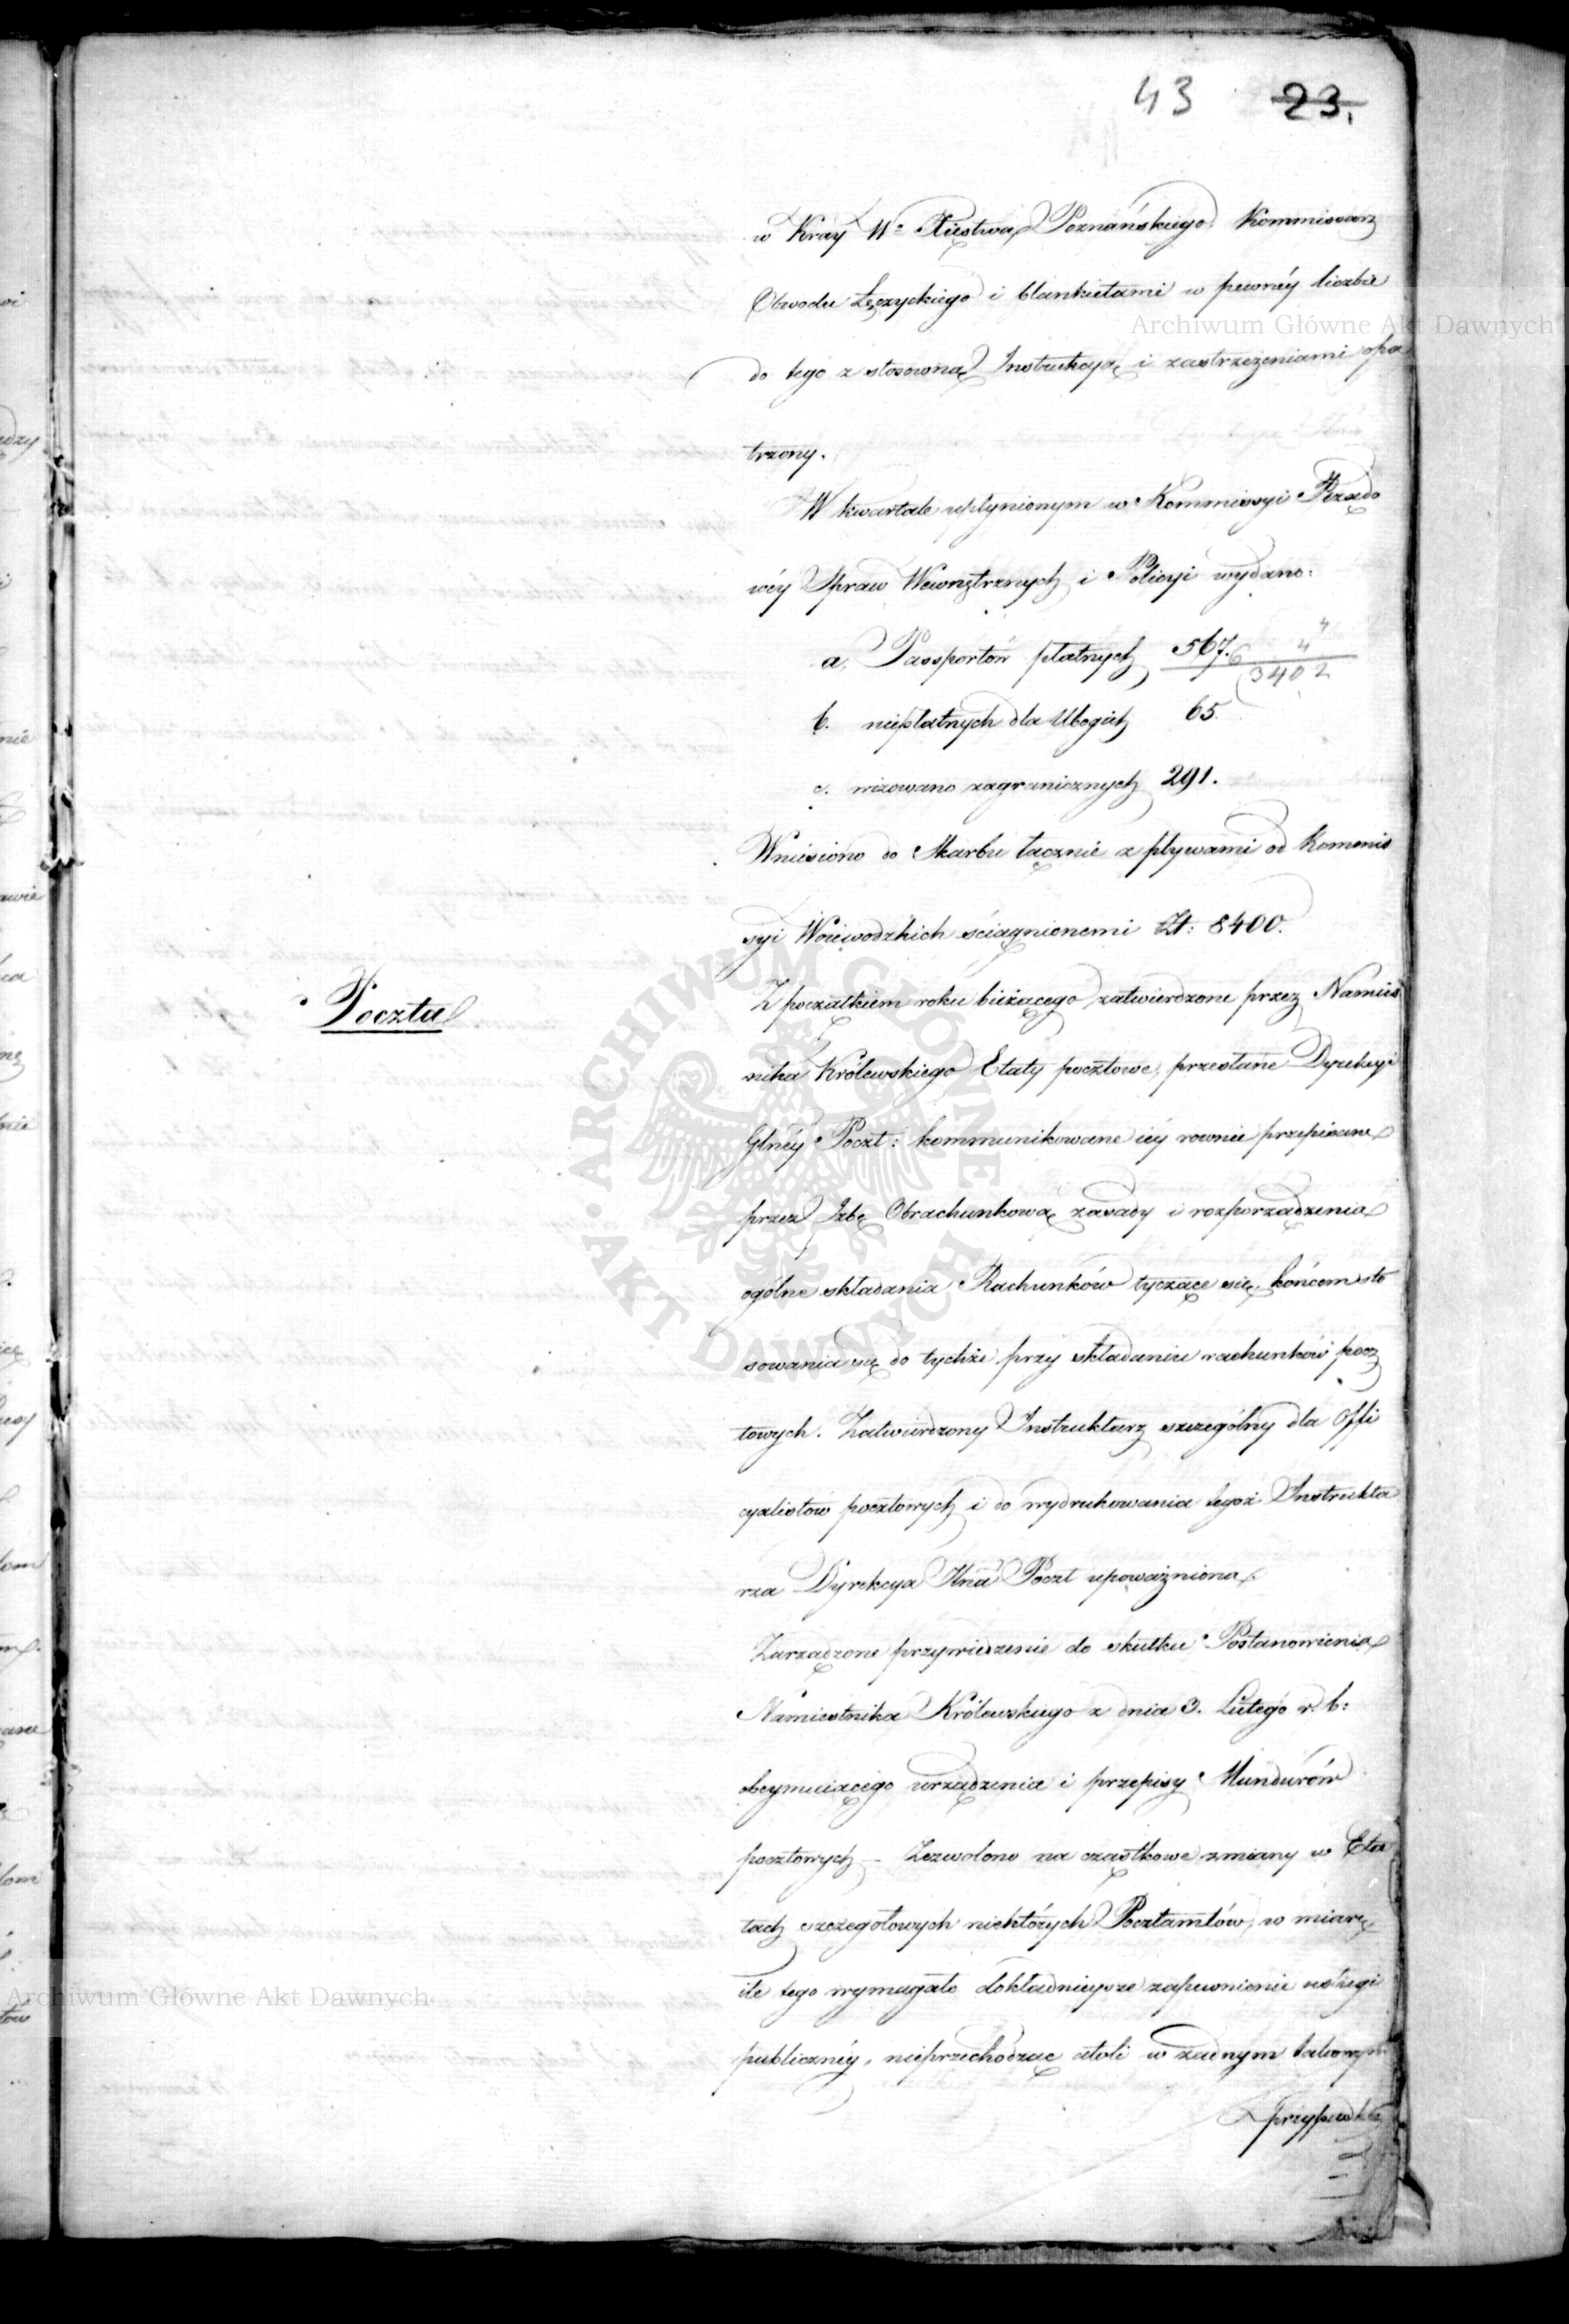 43 23.
w Kray Wº Xięstwa Poznańskiego Kommissarz
Obwodu Łęczyckiego i blankietami w pewnéy liczbie
do tego z stosowną Instrukcyą i zastrzeżeniami opa
trzony.
W kwartale upłynionym w Kommissyi Rządo
wéy Spraw Wewnętrznych i Policyi wydano:
a. Passportów płatnych 567.
6 3402
b. niepłatnych dla Ubogich 65.
c. wizowano zagranicznych 291.
Wniesiono do Skarbu łącznie z pływami od Kommis
syi Woiewodzkich ściągnionemi Zł: 8400.
Poczta
Z początkiem roku bieżącego zatwierdzone przez Namies
nika Królewskiego Etaty pocztowe, przesłane Dyrekcyi
Głnéy Poczt: kommunikowane iéy rownie przepisane
przez Izbę Obrachunkową zasady i rozporządzenia
ogólne składania Rachunków tyczące się, końcem sto
sowania się do tychże przy składaniu rachunków pocz
towych. Zatwierdzony Instruktarz szczególny dla Offi
cyalistow pocztowych i do wydrukowania tegoż Instrukta
rza Dyrekcya Poczt upoważniona.
Zarządzone przywiedzenie do skutku Postanowienia
Namiestnika Królewskiego z dnia 3. Lutego r. b:
obeymuiącego urządzenia i przepisy Mundurów
pocztowych – Zezwolono na cząstkowe zmiany w Eta
tach szczegołowych niektórych Pocztamtów, w miarę
ile tego wymagało dokładnieysze zapewnienie usługi
publicznéy, nieprzechodząc atoli w żadnym takowym
przypadku
Archiwum Główne Akt Dawnych
Archiwum Główne Akt Dawnych
ARCHIWUM GŁÓWNE AKT DAWNYCH